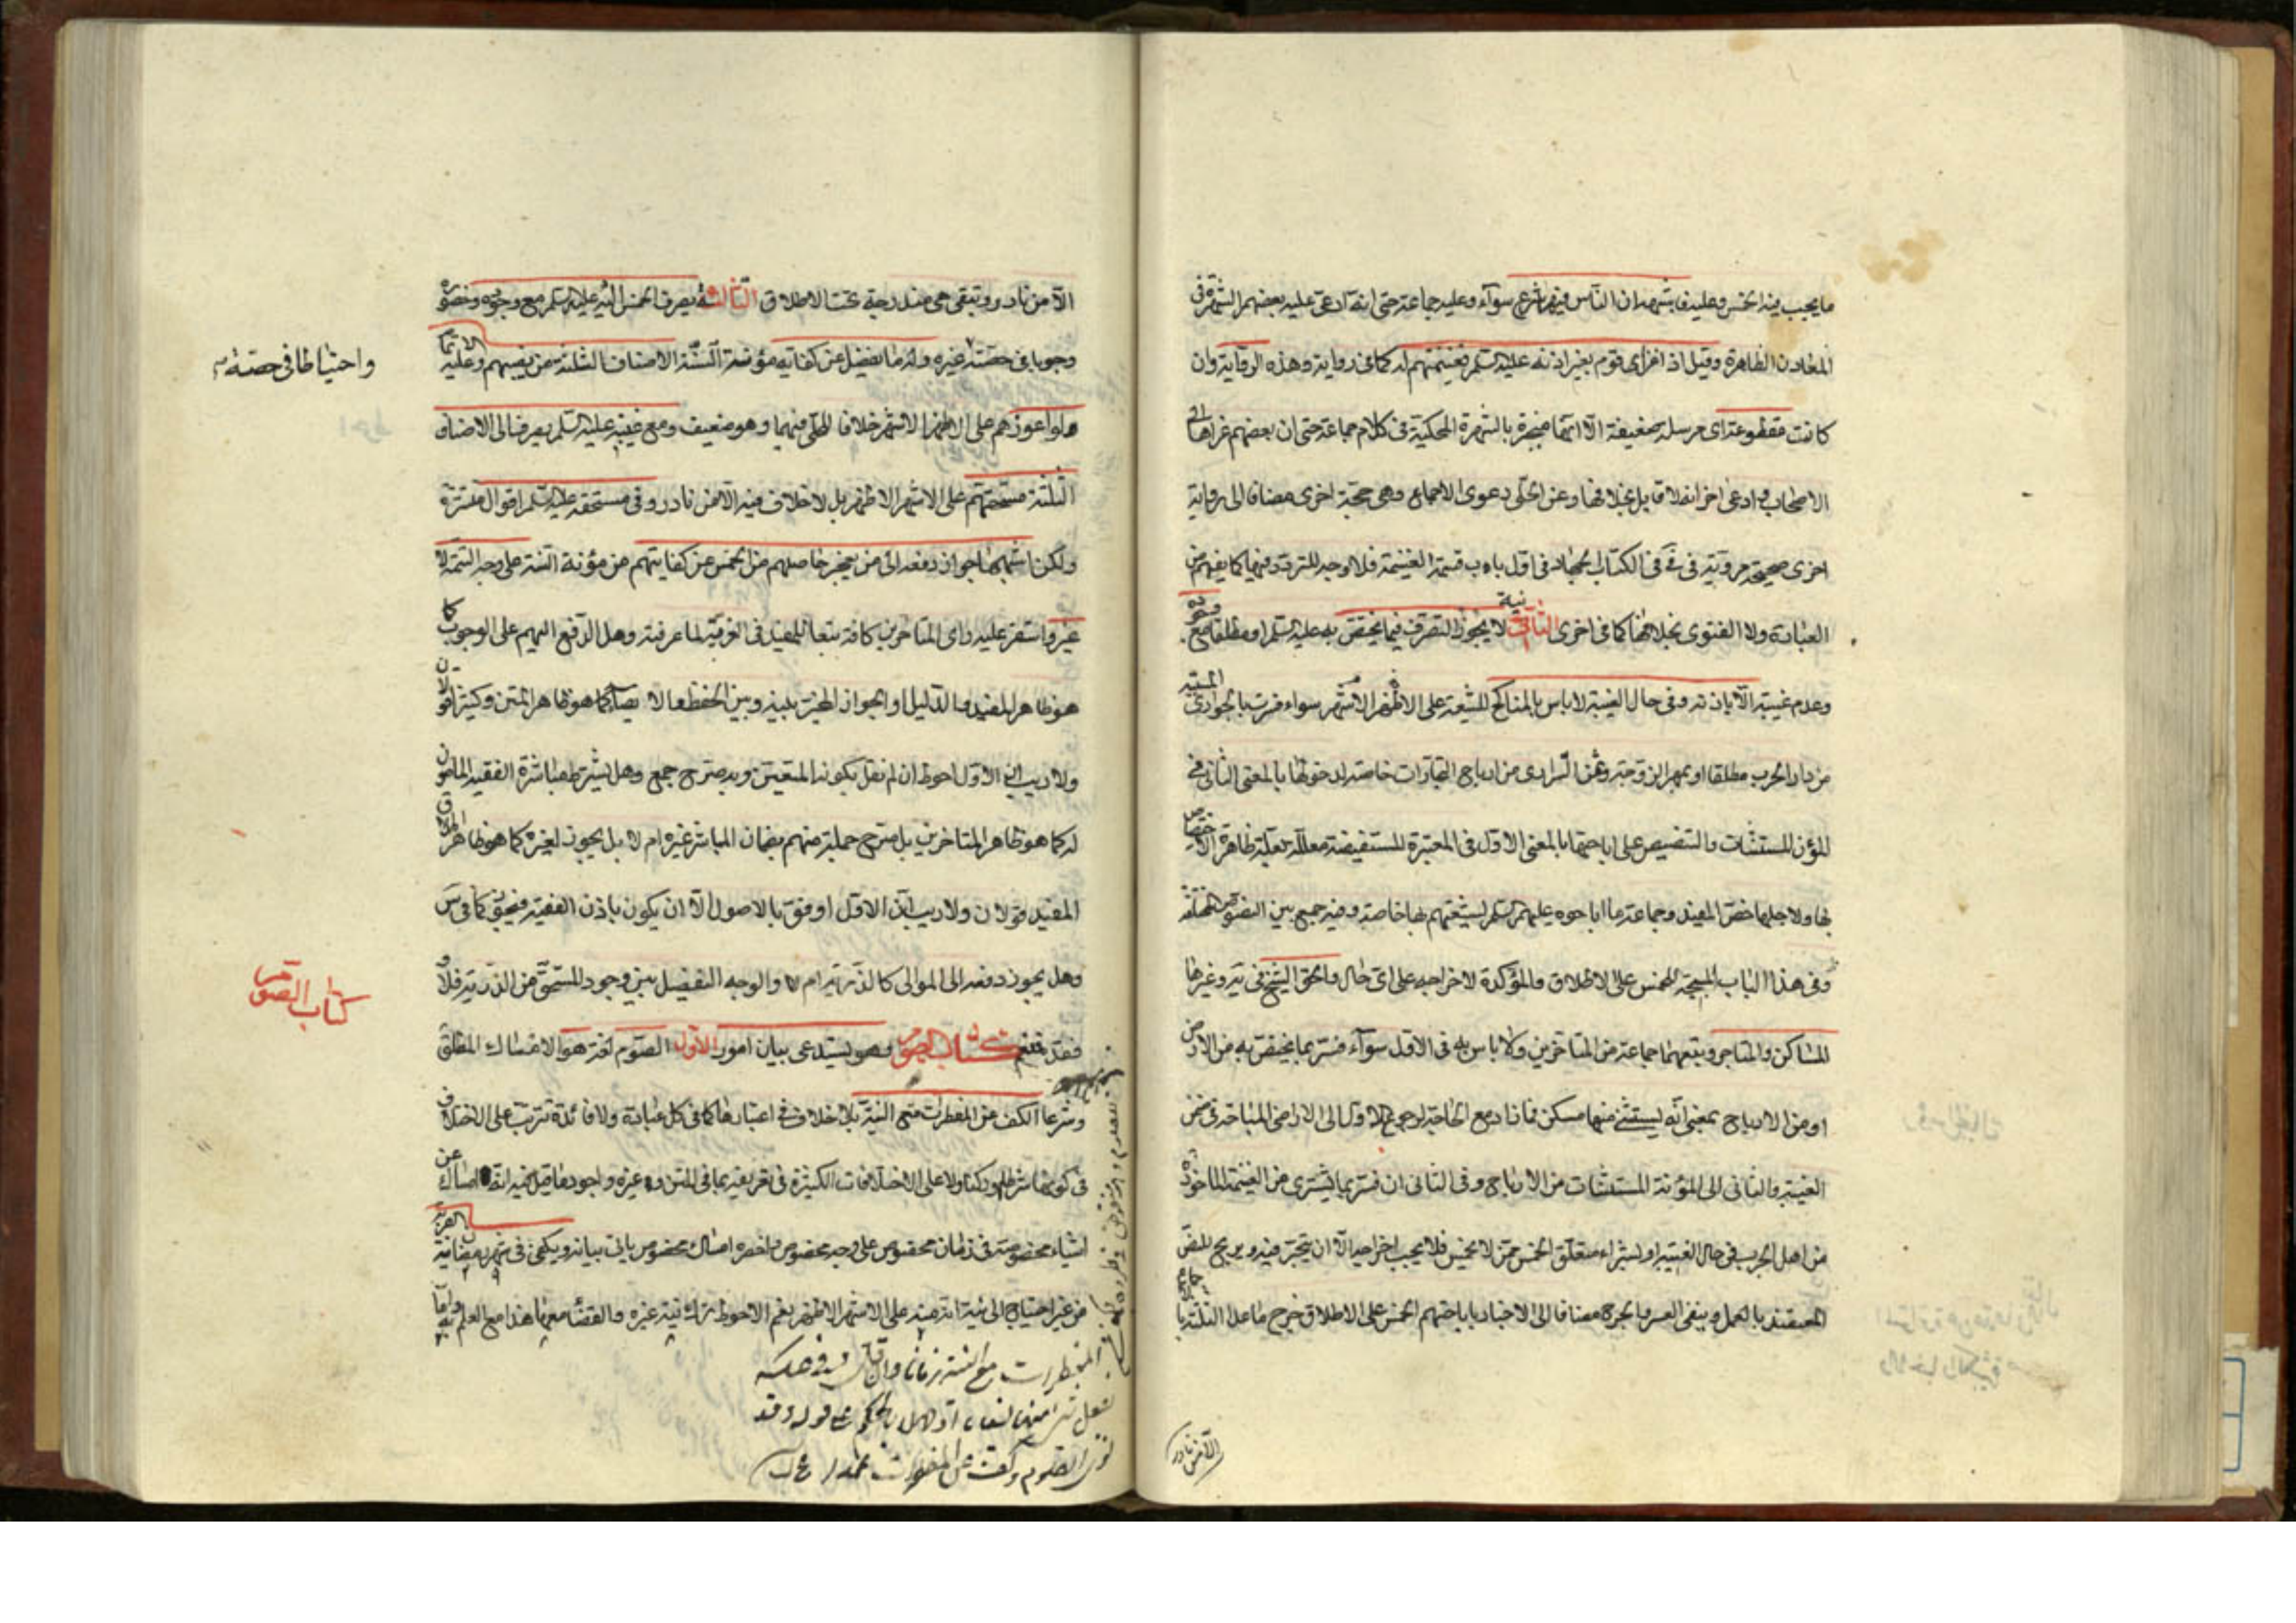 ما يجب فيه الخمس وعليه فاشهر ان الناس فيه شرع سوآء وعليه جماعة حتى انه ادعى عليه بعضهم الشهرة فى
المعادن الظاهرة وقيل اذا غزى قوم بغير اذنه عليه السلم فغنيمتهم له كما فى رواية وهذه الرواية وان
كانت مقطوعة اى مرسلة ضعيفة الا انها منجبرة بالشهرة المحكية فى كلام جماعة حتى ان بعضهم عزاها الى
الاصحاب وادعى اخر انه لا قايل بخلافها وعن الحلى دعوى الاجماع وهى حجة اخرى مضافا الى رواية
اخرى صحيحة مروية فى فى الكتاب الجهاد فى اول باب قسمة الغنيمة فلا وجه للتردد فيها كما يفهم من
العبارة ولا الفتوى بخلافها كما فى اخرى الثانية لا يجوز التصرف فيما يختص به عليه السلم او مطلقا مع
وعدم غيبته الا باذنه وفى حال الغيبة لا باس بالمناكح للشيعة على الاظهر الاشهر سواء فسرت بالجوارى
من دار الحرب مطلقا او بمهر الزوجة وثمن السرارى من ارباح التجارات خاصة لدخولها بالمعنى الثانى فى
المؤن المستثنات والتنصيص على اباحتها بالمعنى الاول فى المعتبرة المستفيضة معللة بعلة ظاهرة الاختصاص
بها ولاجلها خص المفيد وجماعة ما اباحوه عليهم السلم لشيعتهم بها خاصة وفيه جمع بين النصوص المختلفة
وفى هذا الباب المبيحة للخمس على الاطلاق والمؤكدة لاخراجه على اى حال والحق الشيخ فى وغيرها
المساكن والمتاجر وتبعهما جماعة من المتاخرين ولا باس به فى الاول سوآء فسر بما يختص به من الارض
او من الارباح بمعنى انه يستثنى منها مسكن فما زاد مع الحاجة لرجوع الاول الى الاراضى المباحة فى زمن
الغيبة والثانى الى المؤنة المستثنات من الارباح وفى الثانى ان فسر بما يشترى من الغنيمة الماخوذة
من اهل الحرب فى حال الغيبة او لشراء متعلق الخمس ممن لا يخمس فلا يجب اخراجه الا ان يتجر فيه ويربح للنص
المعتضد بالعمل وبنفى العسر والحرج مضافا الى الاخبار باباحتهم الخمس على الاطلاق خرج ما عدا الثلثة باجماع
الا من نادر
الا من نادر وتبقى هى مندرجة تحت الاطلاق الثالثة يصرف الخمس اليه عليه السلم مع وجوده وحضوره
وجوبا فى حصته وغيره وله ما يفضل عن كفاية مؤنة السنة الاصناف الثلثة من نصيبهم وعليه الاتمام
واحتياطا فى حصته
لو اعوزهم على الاظهر الاشهر خلافا للحلى فيهما وهو ضعيف ومع غيبته عليه السلم يصرف الى الاصناف
الثلثة مستحقهم على الاشهر الاظهر بل لا خلاف فيه الا من نادر وفى مستحقه عليه السلم اقوال منتشرة
ولكن اشبهها جواز دفعه الى من يعجز حاصلهم من الخمس عن كفايتهم من مؤنة السنة على وجه التتمة لا
غير واستقر عليه راى المتاخرين كافة تبعا للمفيد فى الغرية لما عرفته وهل الدفع اليهم على الوجوب كما
هو ظاهر المفيد والدليل او الجواز المخير بينه وبين الحفظ والايصاء كما هو ظاهر المتن وكثير قولان
ولا ريب ان الاول احوط ان لم نقل بكونه المتعين وبه صرح جمع وهل يشترط مباشرة الفقيه المامون
له كما هو ظاهر المتاخرين بل صرح جملة منهم بضمان المباشر غيره ام لا بل يجوز لغيره كما هو ظاهر اطلاق
المفيد قولان ولا ريب ان الاول اوفق بالاصول الا ان يكون باذن الفقيه فيجوز كما فى س
وهل يجوز دفعه الى الموالى كالذرية ام لا والوجه التفصيل بين وجود المستحق من الذرية فلا و
كتاب الصوم
فقده فنعم كتاب الصوم وهو يستدعى بيان امور الاول الصوم لغة هو الامساك المطلق
وشرعا الكف عن المفطرات مع النية بلا خلاف فى اعتبارها كما فى كل عبادة ولا فائدة تترتب على الاختلاف
فى كونها شرطا او ركنا ولا على الاختلافات الكثيرة فى تعريفه بما فى المتن وغيره واجود ما قيل فيه انه امساك عن
اشياء مخصوصة فى زمان مخصوص على وجه مخصوص واخصره امساك مخصوص ياتى بيانه ويكفى فى شهر رمضان نية القربة
من غير احتياج الى نية انه منه على الاشهر الاظهر نعم الاحوط ترك نية غيره والقضاء معها هذا مع العلم به واما
المفطرات مع النية